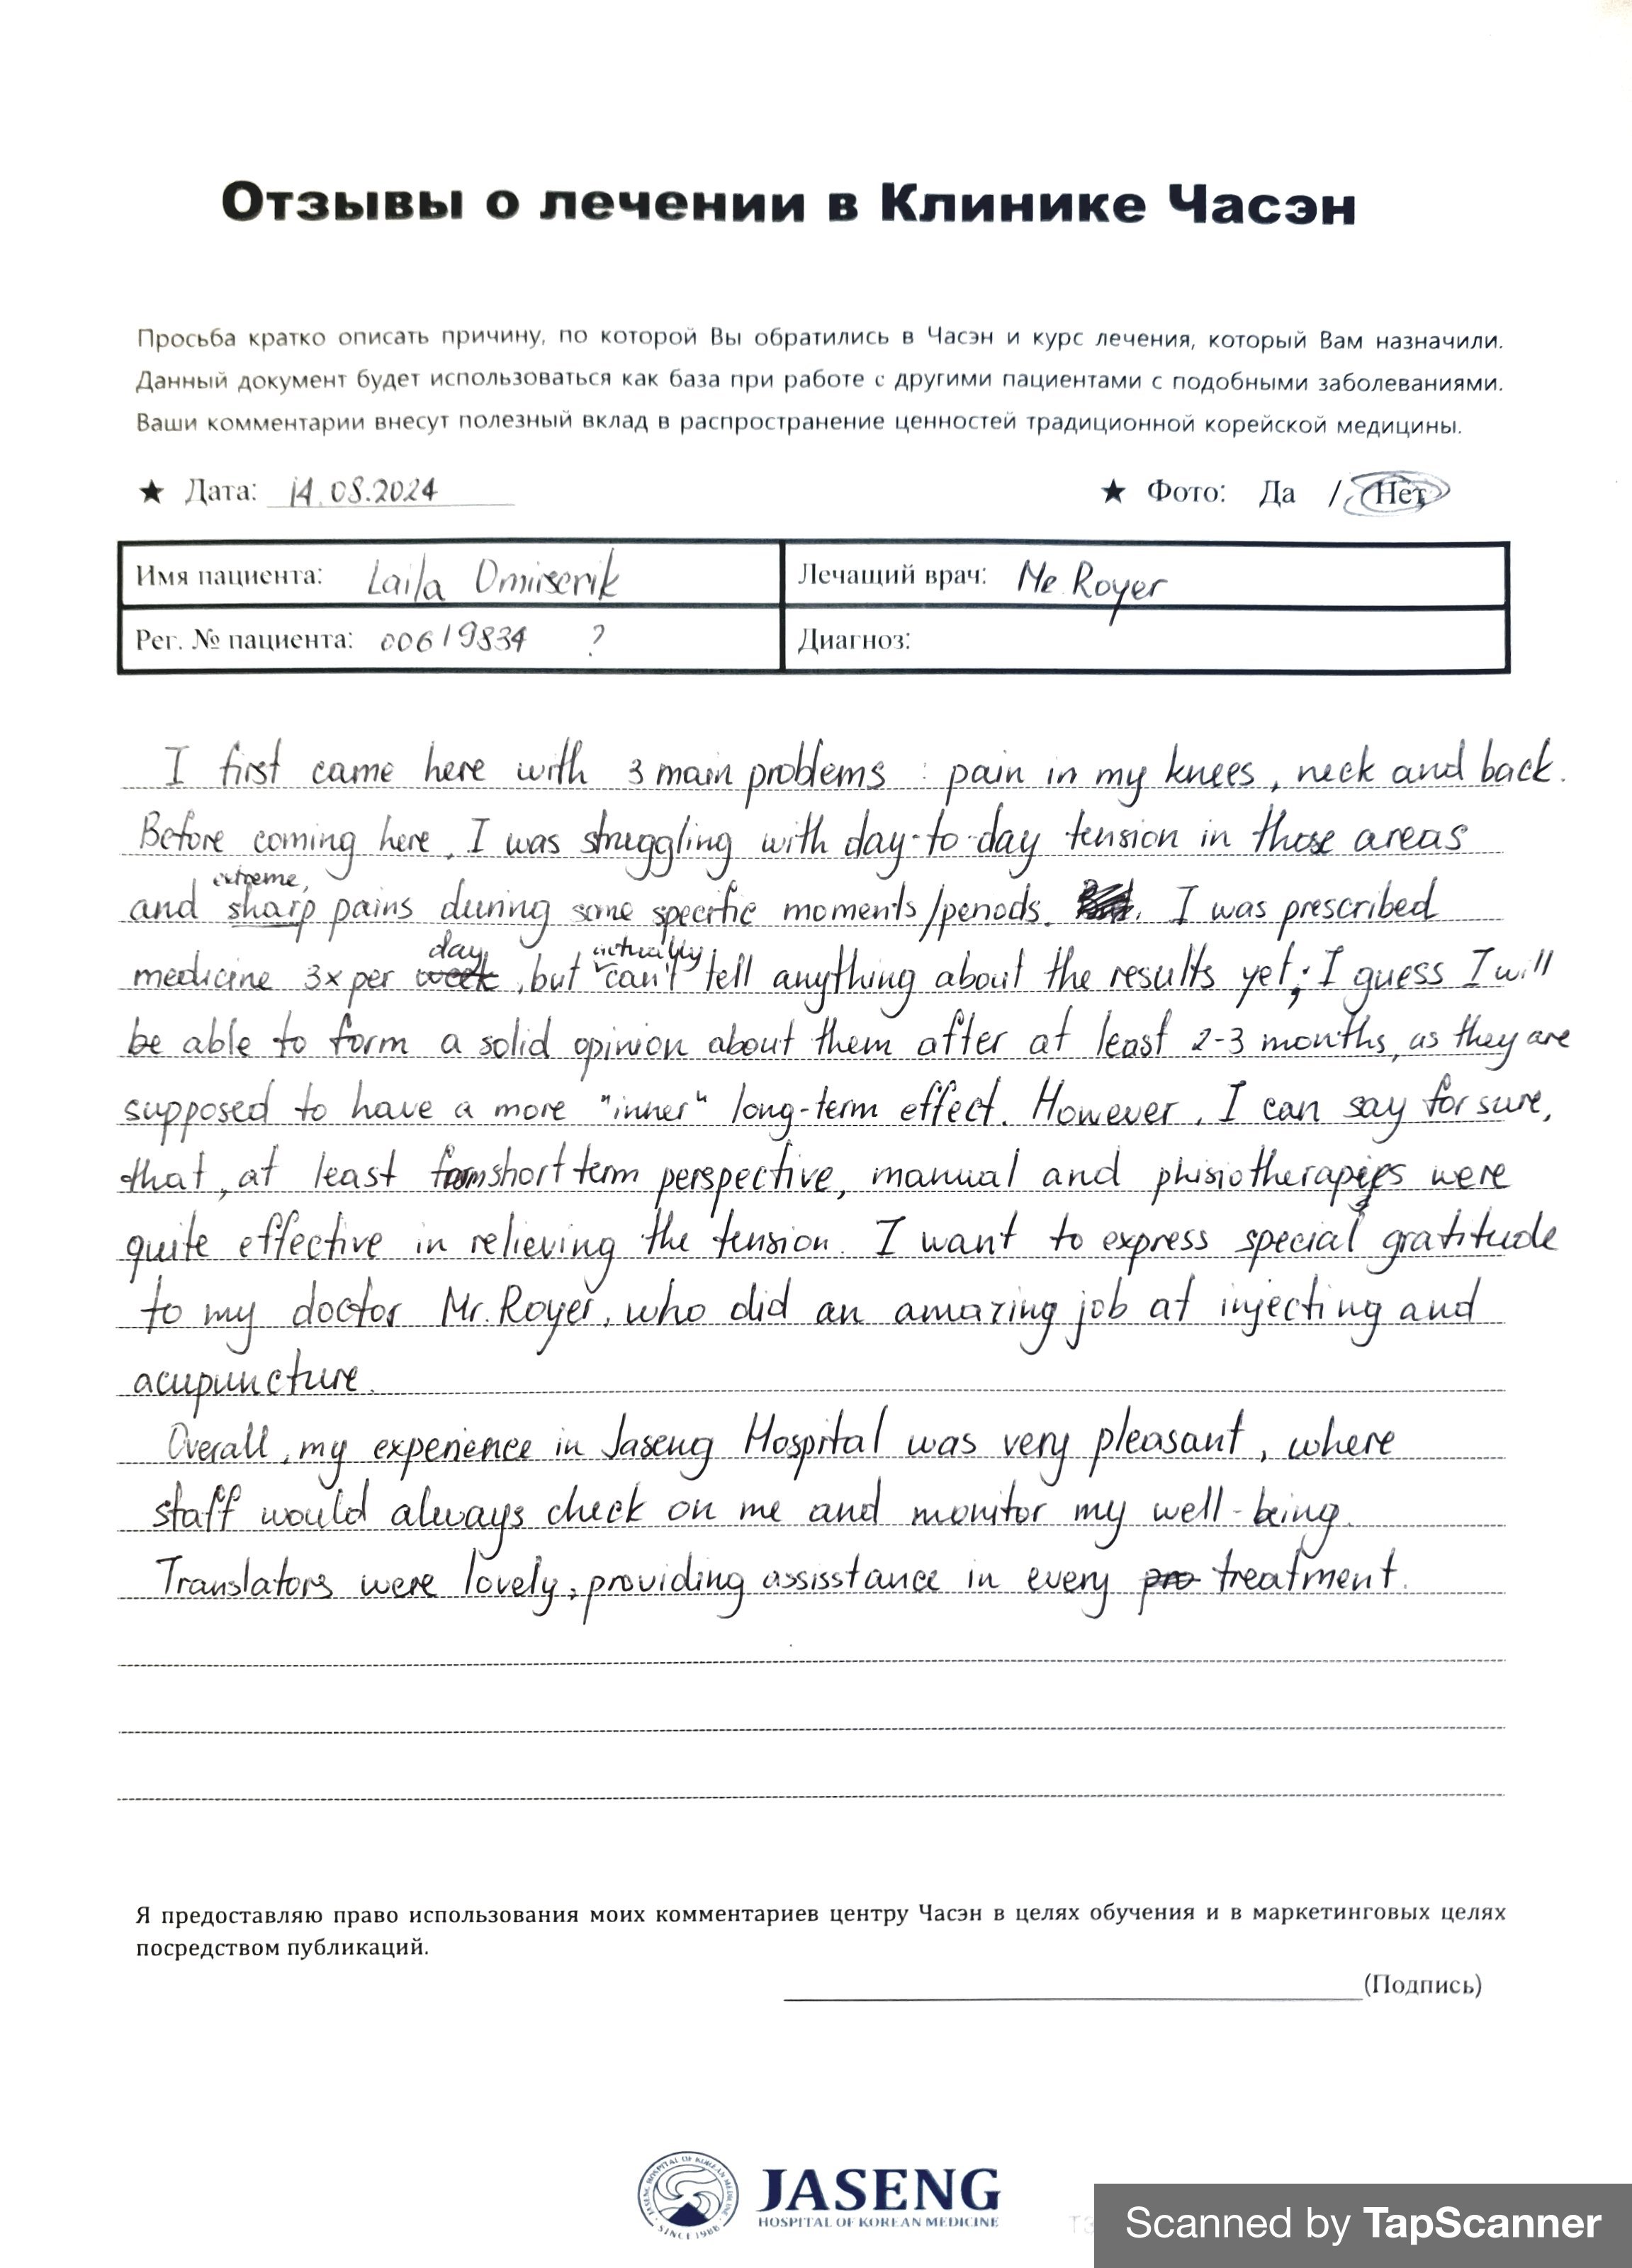 Отзывы о лечении в Клинике Часэн
Просьба кратко описать причину, по которой Вы обратились в Часэн и курс лечения, который Вам назначили.
Данный документ будет использоваться как база при работе с другими пациентами с подобными заболеваниями.
Ваши комментарии внесут полезный вклад в распространение ценностей традиционной корейской медицины.
★ Дата: 14.08.2024 ★ Фото: Да / Нет
Имя пациента: Laila Omirserik Лечащий врач: Mr. Royer
Рег. № пациента: 00619834 ? Диагноз:
I first came here with 3 main problems : pain in my knees, neck and back.
Before coming here, I was struggling with day-to-day tension in those areas
and extreme, sharp pains during some specific moments/periods. I was prescribed
medicine 3x per week day, but actually can't tell anything about the results yet; I guess I will
be able to form a solid opinion about them after at least 2-3 months, as they are
supposed to have a more "inner" long-term effect. However, I can say for sure,
that, at least from short term perspective, manual and phisiotherapies were
quite effective in relieving the tension. I want to express special gratitude
to my doctor Mr. Royer, who did an amazing job at injecting and
acupuncture.
Overall, my experience in Jaseng Hospital was very pleasant, where
staff would always check on me and monitor my well-being.
Translators were lovely, providing assisstance in every pro treatment.
Я предоставляю право использования моих комментариев центру Часэн в целях обучения и в маркетинговых целях
посредством публикаций.
(Подпись)
JASENG HOSPITAL OF KOREAN MEDICINE
SINCE 1988
JASENG
HOSPITAL OF KOREAN MEDICINE
Scanned by TapScanner